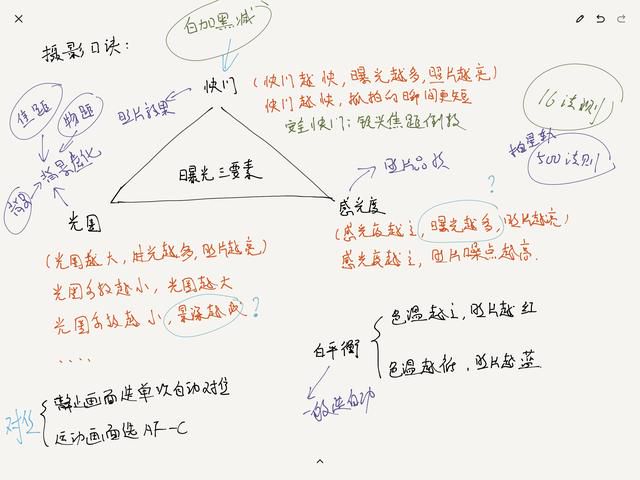 白加黑减
摄影口诀:
快门
(快门越快,曝光越多,照片越亮)
快门越快,抓拍的瞬间更短
安全快门:镜头焦距倒数
照片效果
焦距
物距
背景虚化
16法则
拍星轨
500法则
曝光三要素
照片品质
光圈
感光度
?
(光圈越大,进光越多,照片越亮)
光圈系数越小,光圈越大
光圈系数越小,景深越浅
?
....
(感光度越高,曝光越多,照片越亮)
感光度越高,照片噪点越高.
白平衡
色温越高,照片越红
色温越低,照片越蓝
一般选自动
对焦
静止画面选单次自动对焦
运动画面选 AF-C